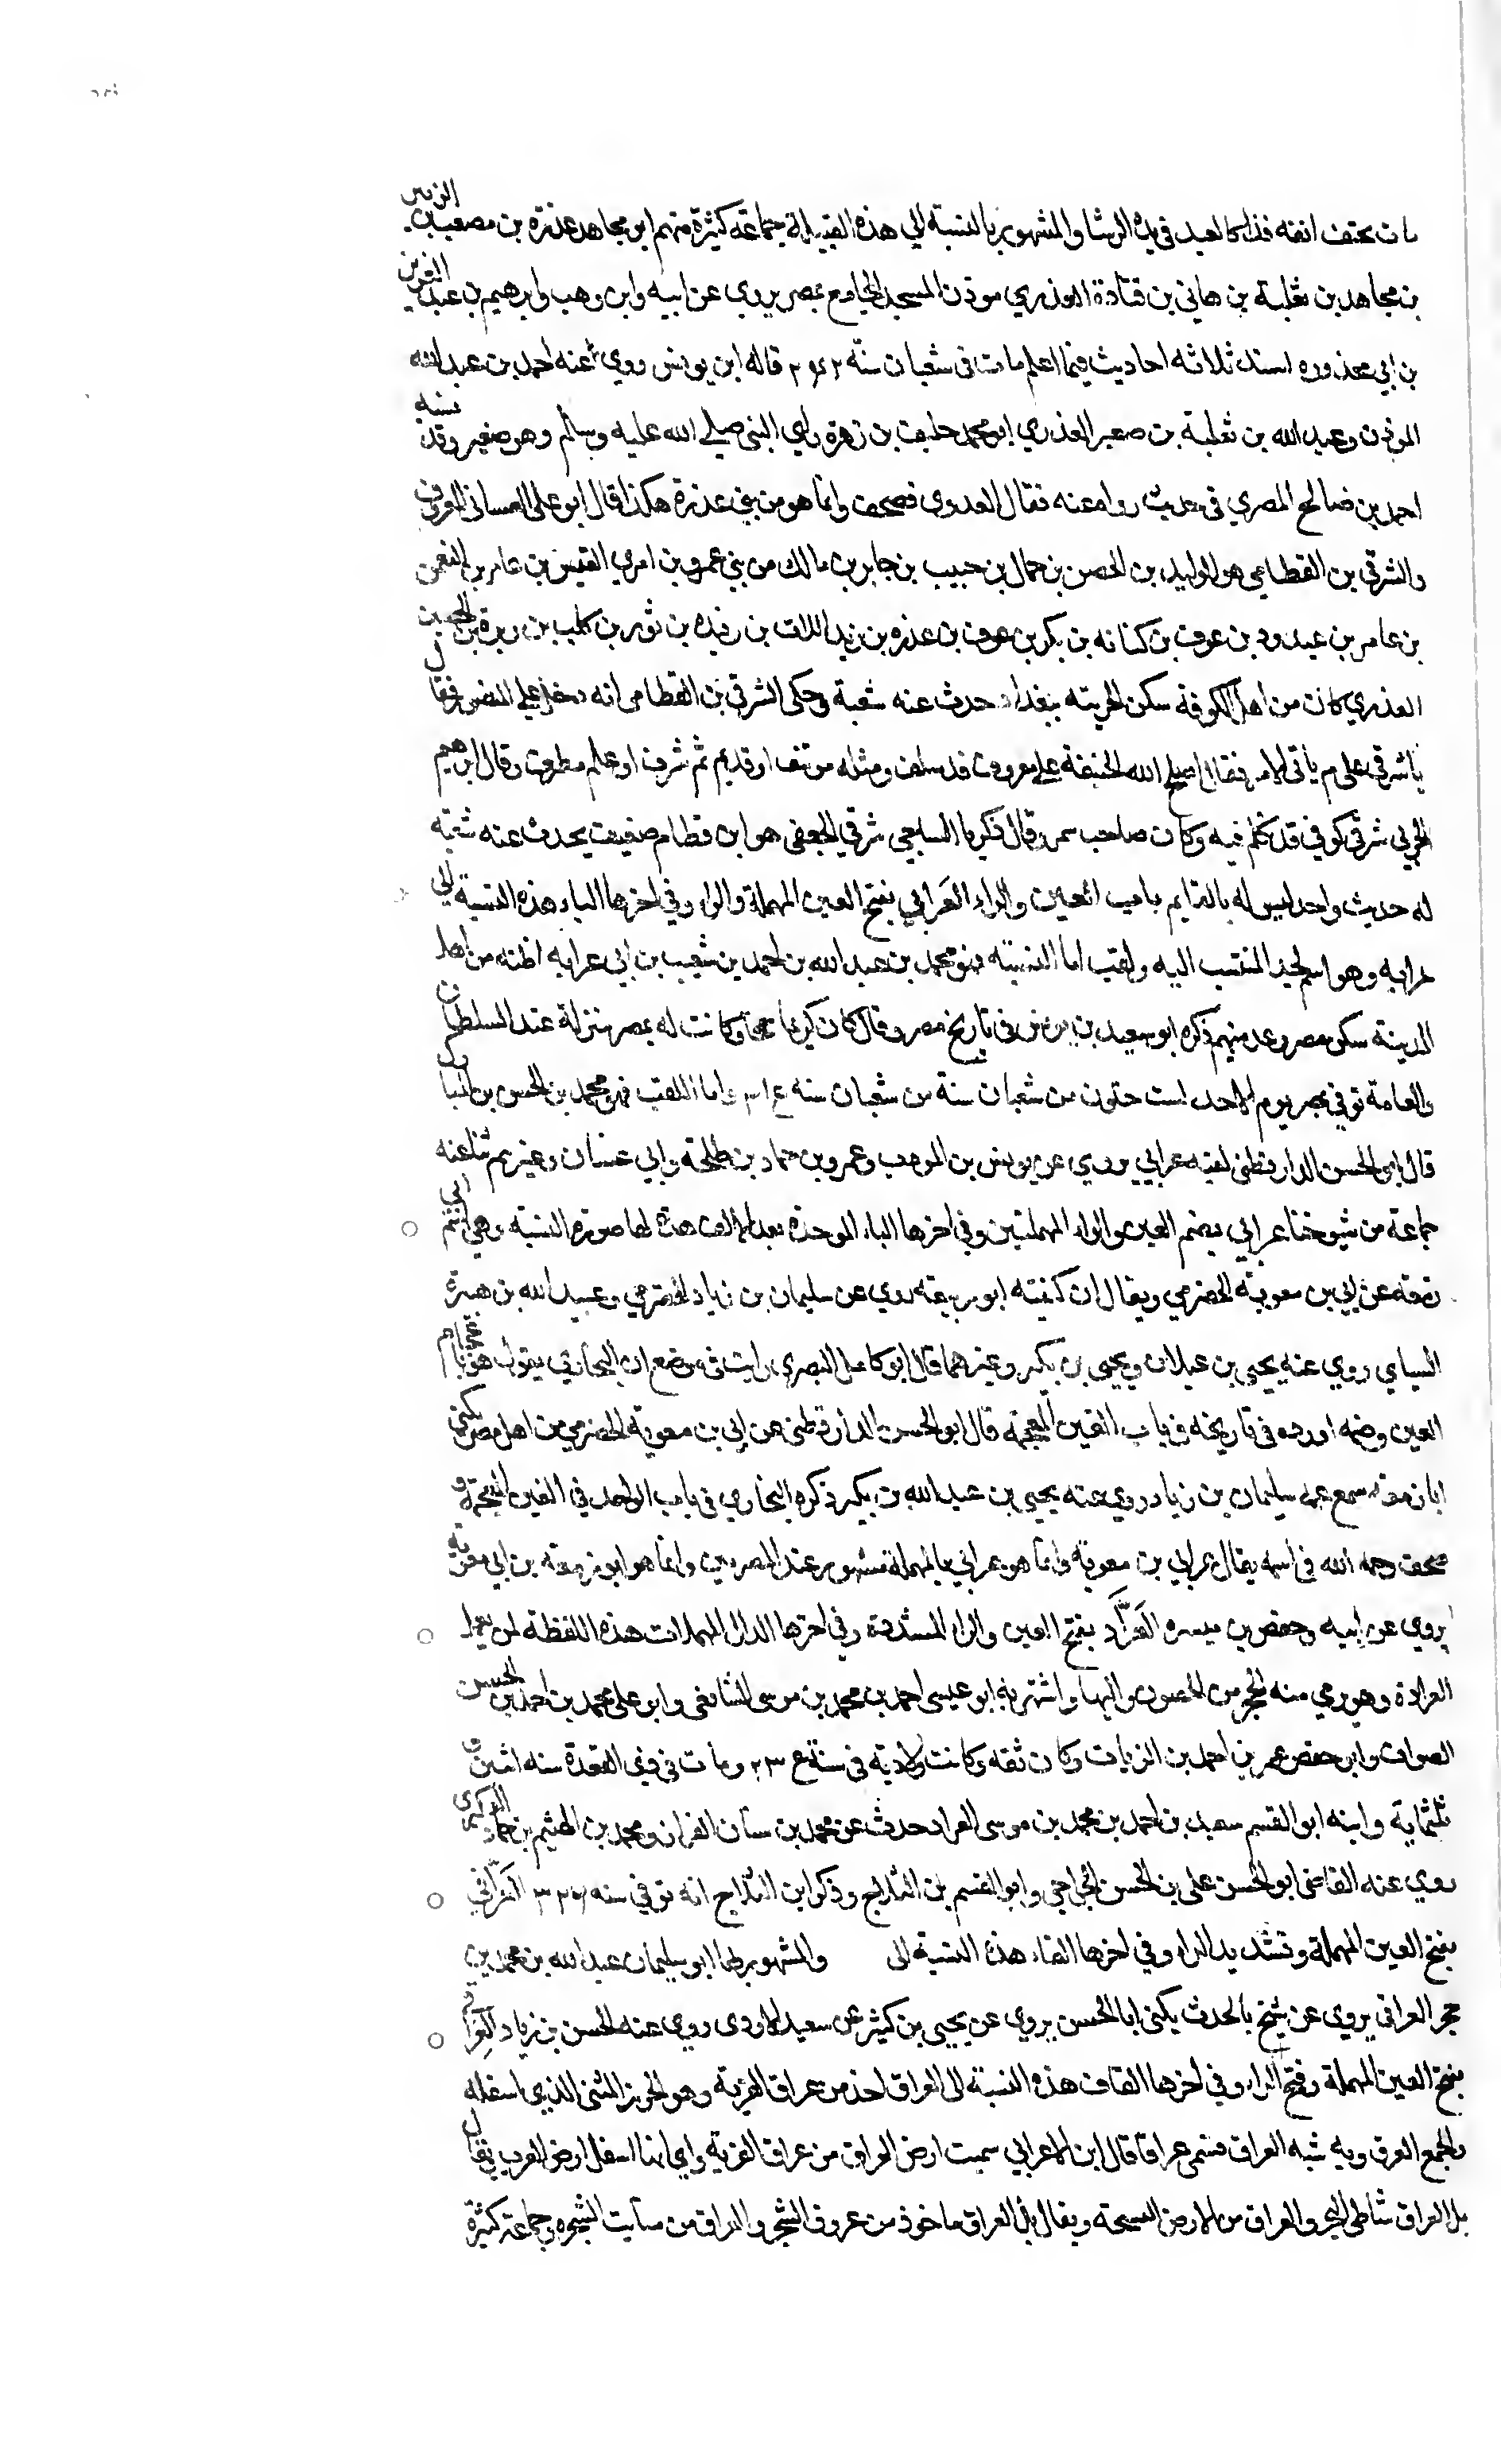 مات حتف انفه فذاك العبد في يده الرشا والمشهور بالنسبة الي هذه القبيلة جماعة كثيرة منهم ابو مجاهد عذرة بن مصعب بن الزبير
بن مجاهد بن ثعلبة بن هاني بن قتادة العذري موذن المسجد الجامع بمصر يروي عن ابيه وابن وهب وابرهيم بن عبد العزيز
بن ابي محذوره اسند ثلاثه احاديث فيما اعلم مات في شعبان سنه قاله ابن يونس روي عنه احمد بن عبد الله
الموذن وعبد الله بن ثعلبة بن صعير العذري ابو محمد حليف بن زهرة راي النبي صلي الله عليه وسلم وهو صغير وقد نسبه
احمد بن صالح المصري في حديث رواه عنه فقال العدوي فصحف وانما هو من بني عذرة هكذا قال ابو علي الغساني
والشرقي بن القطامي هو الوليد بن الحصن بن جمال بن حبيب بن جابر بن مالك من بني عمرو بن امري القيس بن عامر بن النعمن
بن عامر بن عبدود بن عوف بن كنانه بن بكر بن عوف بن عذره بن زيد اللات بن رفيده بن ثور بن كلب بن وبرة
العذري كان من اهل الكوفة سكن الحربيه ببغداد حدث عنه شعبة وحكى الشرقي بن القطامي انه دخل علي المنصور فقال
يا شرقي علي م ياتي الامر فقال اصلح الله الخليفة علي معروف قد سلف ومثله موتنف او قديم ثم شرف او علم مطرف وقال ابرهيم
الحربي شرقي كوفي قد تكلم فيه وكان صاحب سمر وقال زكريا الساجي شرقي الجعفي هو ابن قطام ضعيف يحدث عنه شعبة
له حديث واحد ليس له بالقايم باب العين والراء العَرابي بفتح العين المهملة والراء وفي اخرها الباء هذه النسبة الي
عرابه وهو اسم لجد المنتسب اليه ولقب اما النسبة فهو محمد بن عبد الله بن احمد بن شعيب بن ابي عرابه اظنه من اهل
المدينة سكن مصر وعد منهم ذكره ابو سعيد بن يونس في تاريخ مصر وقال كان كريما سمحا وكانت له بمصر منزلة عند السلطان
والعامة توفي بمصر يوم الاحد لست خلون من شعبان سنة واما اللقب فهو محمد بن الحسن بن المبارك
قال ابو الحسن الدارقطني لقبه عرابي يروي عن يونس بن المودب وعمرو بن حماد بن طلحة وابي غسان وغيرهم ثنا عنه
جماعة من شيوخنا عرابي بضم العين والراء المهملتين وفي اخرها الباء الموحدة بعد الالف هذه لها صورة النسبه وهي اسم ابي
زمعه عرابي بن معوية الحضرمي ويقال ان كنيته ابو ربيعه روي عن سليمان بن زياد الحضرمي وعبيد الله بن هبيرة
السبائي روي عنه يحيي بن غيلان ويحيي بن بكير وغيرهما قال ابو كامل البصري رايت في موضع ان البخاري يقول هو باعجام
العين وضمه اورده في تاريخه في باب الغين المعجمة قال ابو الحسن الدارقطني عرابي بن معوية الحضرمي من اهل مصر يكني
ابا زمعه سمع عمه سليمان بن زياد روي عنه يحيي بن عبد الله بن بكير ذكره البخاري في باب الواحد في الغين المعجمة و
صحف رحمه الله في اسمه يقال عرابي بن معوية وانما هو عرابي بالمهملة مشهور عند المصريين وانما هو ابو زمعه بن ابي معوية
يروي عن ابيه وحفص بن ميسره العَرَّاد بفتح العين والراء المشددة وفي اخرها الدال المهملات هذه اللفظة لمن يعمل
العرادة وهو يرمي منه الحجر من الحصون واليها واشتهر به ابو عيسى احمد بن محمد بن موسى الشافعي وابو علي محمد بن احمد بن الحسن
الصواف وابو حفص عمر بن احمد بن الزيات وكان ثقه وكانت ولادته في سنة ومات في ذي القعدة سنه اثنين و
ثلثماية وابنه ابو القسم سعيد بن احمد بن محمد بن موسى العراد حدث عن محمد بن سنان القزاز ومحمد بن الهثيم بن حماد
روي عنه القاضي ابو الحسن علي بن الحسن الجراحي وابو القسم بن الثلاج وذكر ابن الثلاج انه توفي سنه العَرَّافي
بفتح العين المهملة وتشديد الراء وفي اخرها الفاء هذه النسبة الى والمشهور بها ابو سليمان عبد الله بن محمد بن
حجر العرافي يروي عن شيخ بالحدث يكنى ابا الحسن يروي عن يحيي بن كثير عن سعيد الاودي روي عنه الحسن بن زياد
بفتح العين المهملة وفتح الراء وفي اخرها القاف هذه النسبة الى العراق اخذ من عراق القربة وهو الخرز المثنى الذي اسفله
والجمع العرق وبه شبه العراق فسمي عراقا قال ابن الاعرابي سميت ارض العراق من عراق القربة واي انها اسفل ارض العرب يقال
بل العراق شاطي البحر والعراق من الارض السبخة ويقال بل العراق ماخوذ من عروق الشجر والعراق من منابت الشجر وجماعة كثيرة